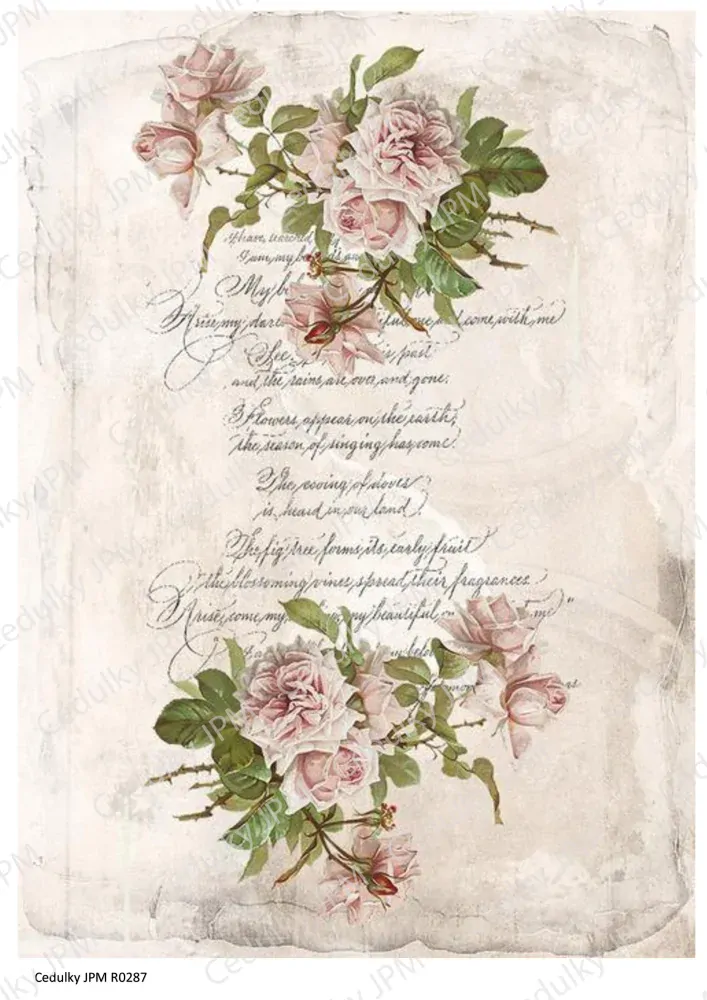 I have
I am my
My
Arise, my me and come with me
See past
and the rains are over and gone.
Flowers appear on the earth;
the season of singing has come.
The cooing of doves
is heard in our land.
The fig tree forms its early fruit
the blossoming vines spread their fragrances.
Arise, come, my my beautiful me"
Cedulky JPM R0287
Cedulky JPM